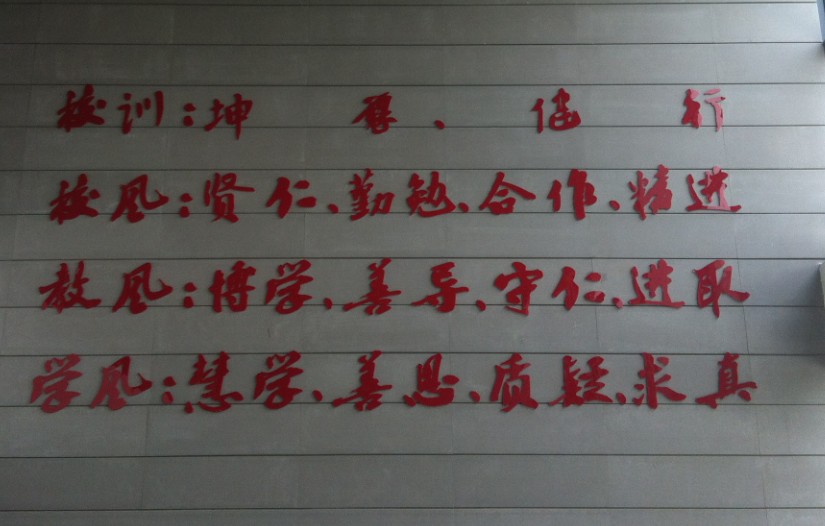 校训:坤厚、健行
校风:贤仁、勤勉、合作、精进
教风:博学、善导、守仁、进取
学风:慧学、善思、质疑、求真